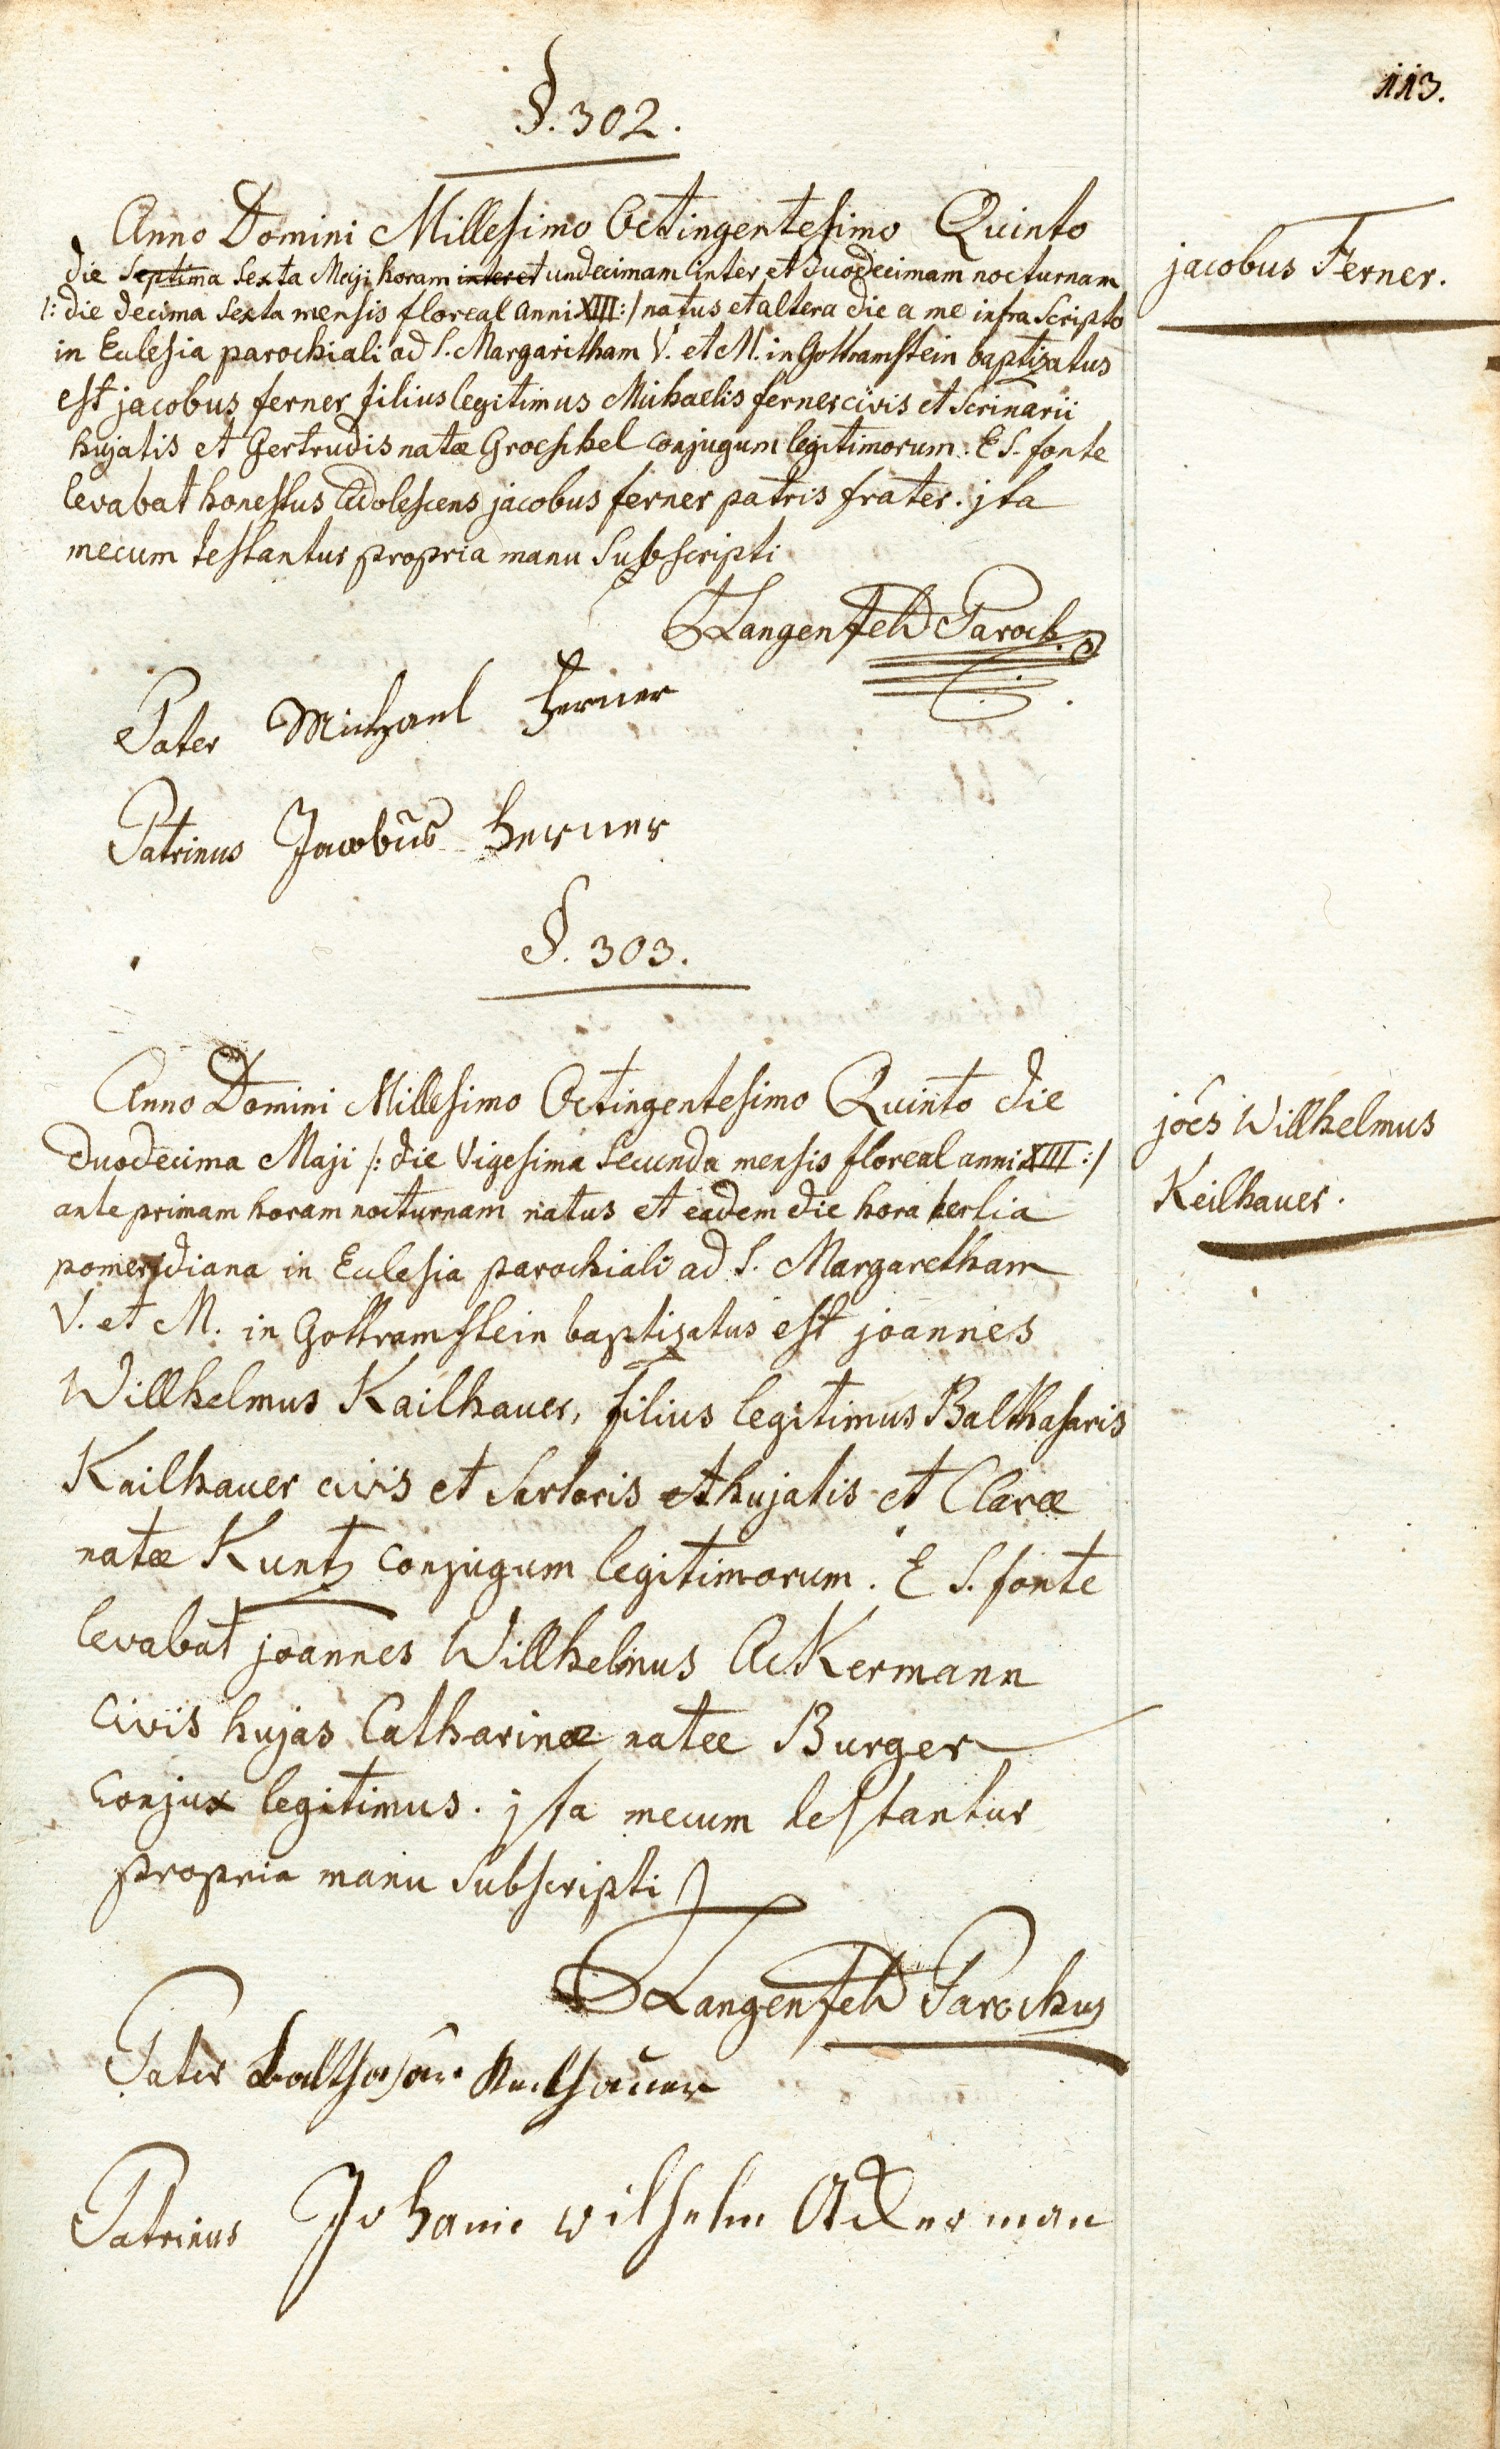 113.
§. 302.
Anno Domini Millesimo Octingentesimo Quinto
die septima sexta Maji horam inter et undecimam inter et duodecimam nocturnam
/: die decima sexta mensis floreal anni XIII :/ natus et altera die a me infra scripto
in Eclesia parochiali ad S. Margaritham V. et M. in Gottramstein baptizatus
est jacobus ferner filius legitimus Michaelis ferner civis et scrinarii
hujatis et Gertrudis natæ Groeschel conjugum legitimorum. E S. fonte
levabat honestus adolescens jacobus ferner patris frater. jta
mecum testantur propria manu subscripti
Langenfeld Paroch.
Pater Michael Ferner
Patrinus Jacobus Ferner
jacobus Ferner.
§. 303.
Anno Domini Millesimo Octingentesimo Quinto die
duodecima Maji /: die vigesima secunda mensis floreal anni XIII :/
ante primam horam nocturnam natus et eadem die hora tertia
pomeridiana in Eclesia parochiali ad S. Margaretham
V. et M. in Gottramstein baptizatus est joannes
Willhelmus Kailhauer, filius legitimus Balthasaris
Kailhauer civis et sartoris et hujatis et Claræ
natæ Kuntz conjugum legitimorum. E S. fonte
levabat joannes Willhelmus Ackermann
civis hujas Catharinæ natæ Burger
conjux legitimus. jta mecum testantur
propria manu subscripti
Langenfeld Parochus
Pater balthasar
Patrinus Johann wilhelm Ackerman
joes Willhelmus
Keilhauer.